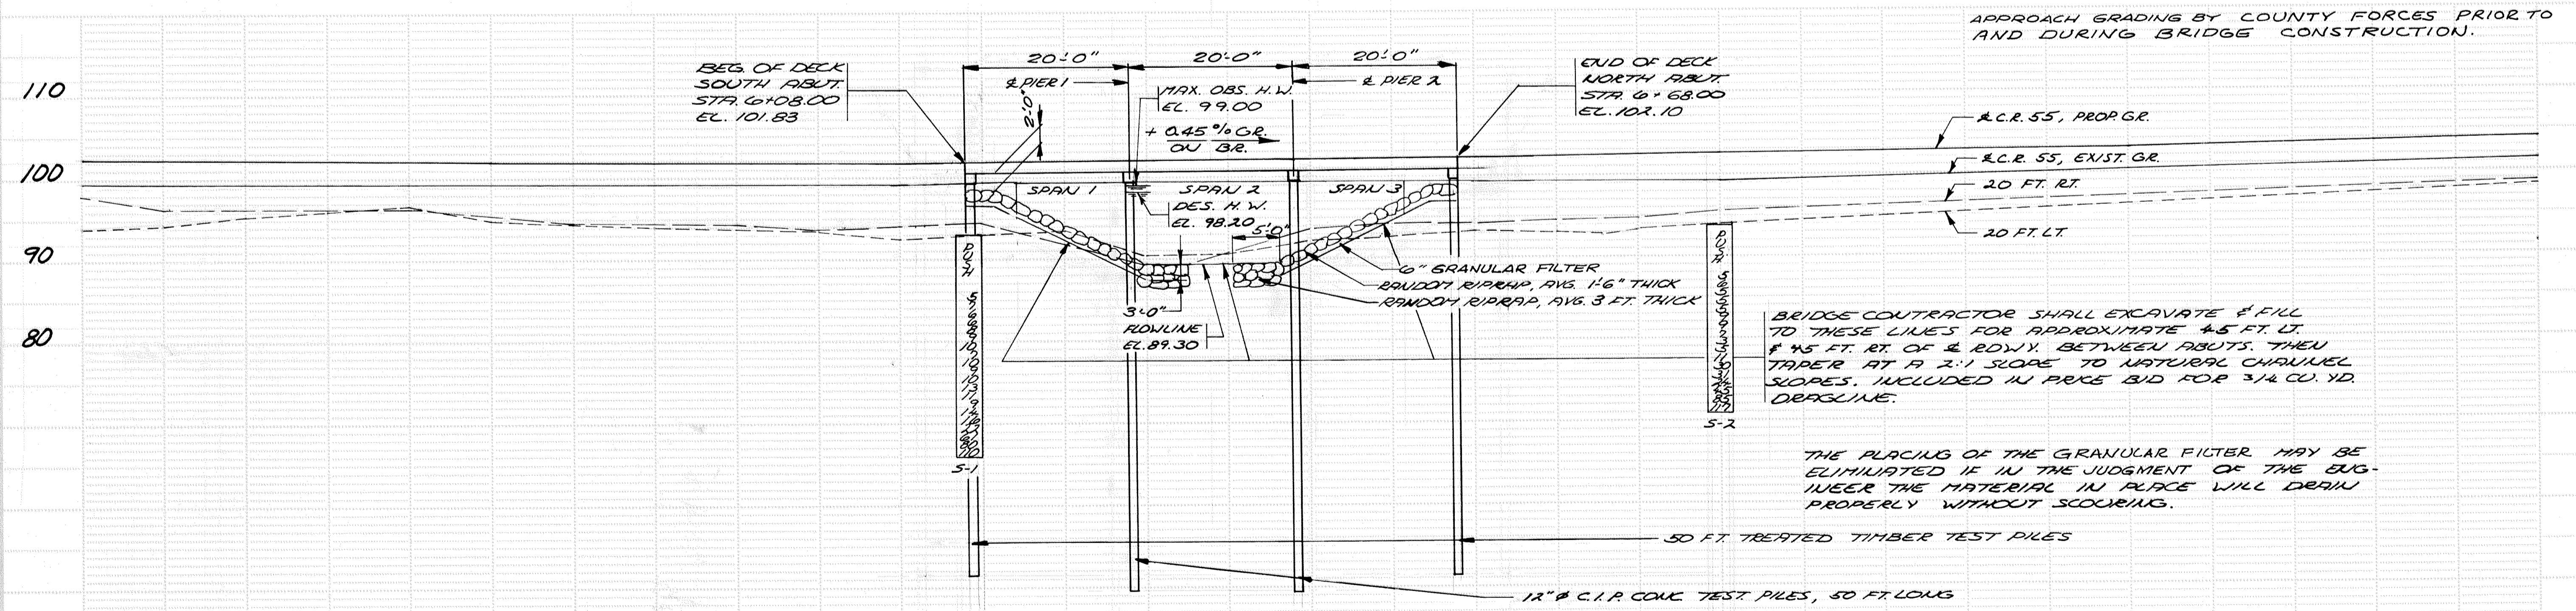 APPROACH GRADING BY COUNTY FORCES PRIOR TO
AND DURING BRIDGE CONSTRUCTION.
110
100
90
80
BEG. OF DECK
SOUTH ABUT.
STA. 6+08.00
EL. 101.83
20'-0"
20'-0"
20'-0"
℄ PIER 1
℄ PIER 2
2'-0"
MAX. OBS. H.W.
EL. 99.00
+ 0.45 % GR.
ON BR.
END OF DECK
NORTH ABUT.
STA. 6+68.00
EL. 102.10
℄ C.R. 55, PROP. GR.
℄ C.R. 55, EXIST. GR.
20 FT. RT.
20 FT. LT.
SPAN 1
SPAN 2
SPAN 3
DES. H.W.
EL. 98.20
5'-0"
3'-0"
FLOWLINE
EL. 89.30
6" GRANULAR FILTER
RANDOM RIPRAP, AVG. 1'-6" THICK
RANDOM RIPRAP, AVG. 3 FT. THICK
PUSH
S-1
PUSH
S-2
BRIDGE CONTRACTOR SHALL EXCAVATE & FILL
TO THESE LINES FOR APPROXIMATE 45 FT. LT.
& 45 FT. RT. OF ℄ RDWY. BETWEEN ABUTS. THEN
TAPER AT A 2:1 SLOPE TO NATURAL CHANNEL
SLOPES. INCLUDED IN PRICE BID FOR 3/4 CU. YD.
DRAGLINE.
THE PLACING OF THE GRANULAR FILTER MAY BE
ELIMINATED IF IN THE JUDGMENT OF THE ENG-
INEER THE MATERIAL IN PLACE WILL DRAIN
PROPERLY WITHOUT SCOURING.
50 FT. TREATED TIMBER TEST PILES
12" ϕ C.I.P. CONC. TEST PILES, 50 FT. LONG